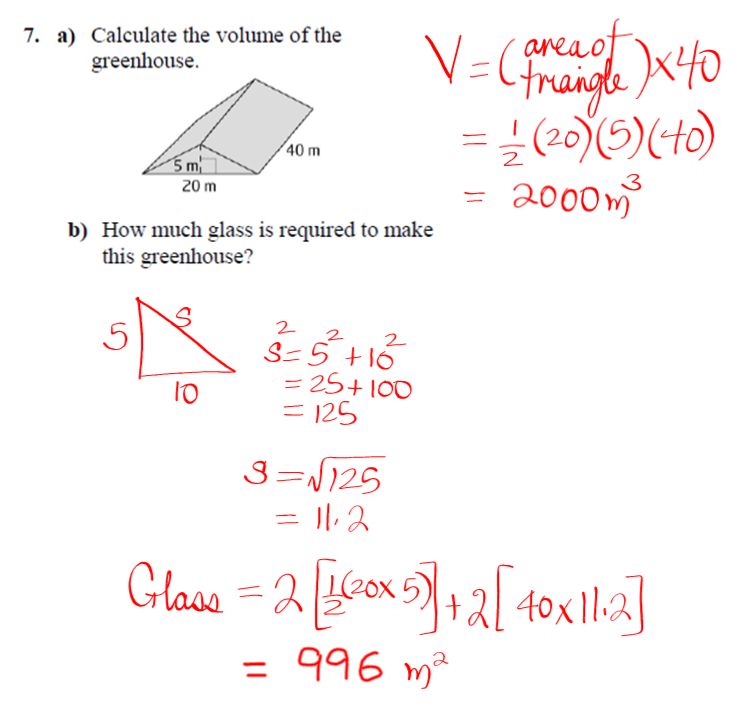 7. a) Calculate the volume of the
greenhouse.
V = (area of triangle) × 40
= 1/2 (20)(5)(40)
= 2000 m³
5 m
40 m
20 m
b) How much glass is required to make
this greenhouse?
5
s
10
s² = 5² + 10²
= 25 + 100
= 125
s = √125
= 11.2
Glass = 2[1/2(20 × 5)] + 2[40 × 11.2]
= 996 m²